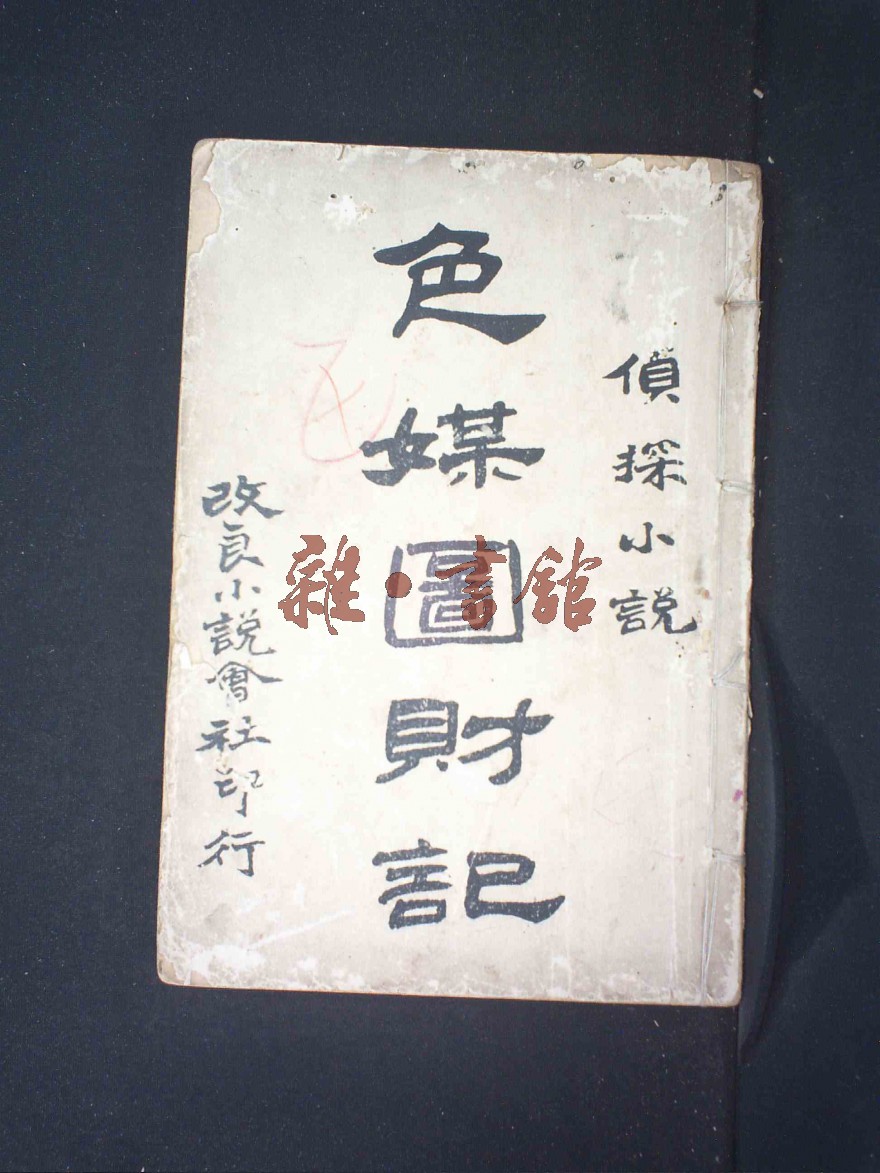 偵探小説
色媒圖財記
改良小説會社印行
雜·書館